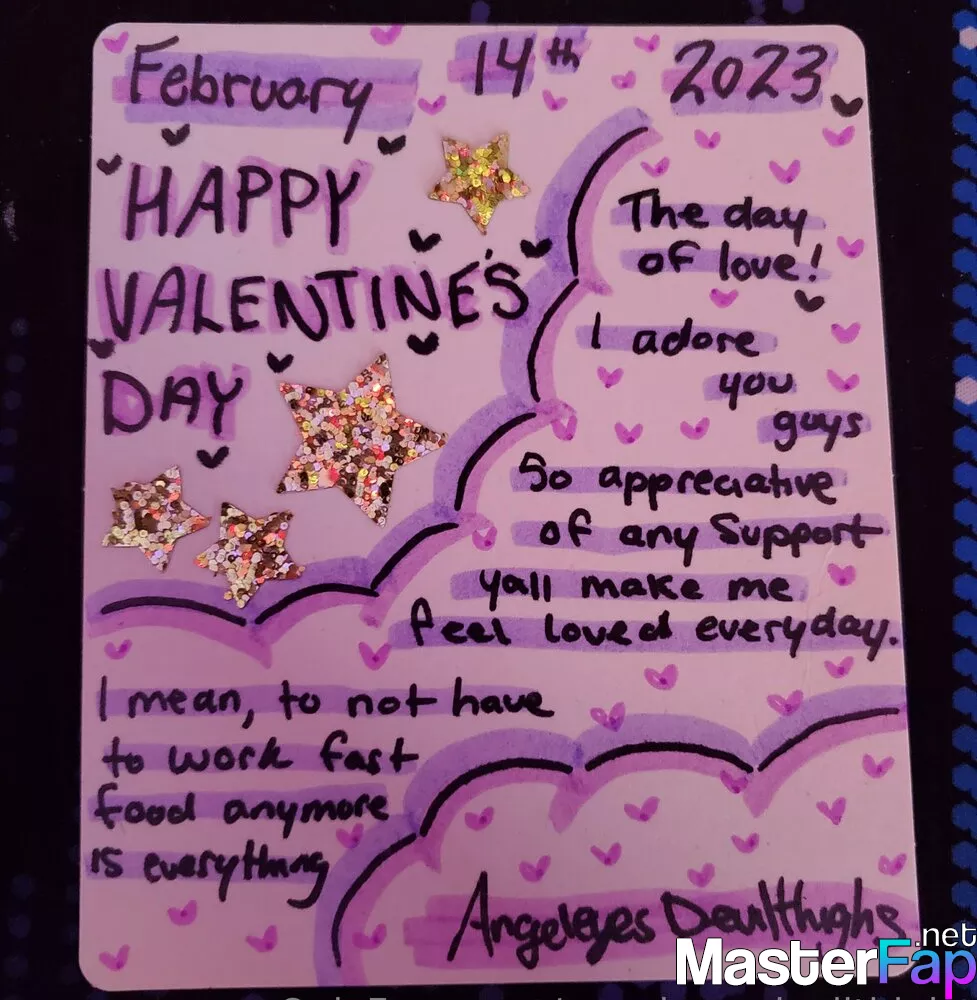 February 14th 2023
HAPPY
VALENTINE'S
DAY
The day
of love!
I adore
you
guys
So appreciative
of any Support
yall make me
feel loved everyday.
I mean, to not have
to work fast
food anymore
is everything
Angeleyes Devilthighs
MasterFap.net